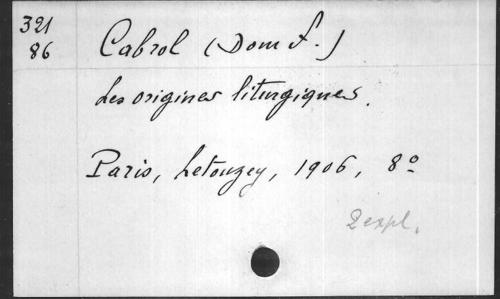 321
86
Cabrol (Dom F.)
Les origines liturgiques.
Paris, Letouzey, 1906, 8º
2 expl.